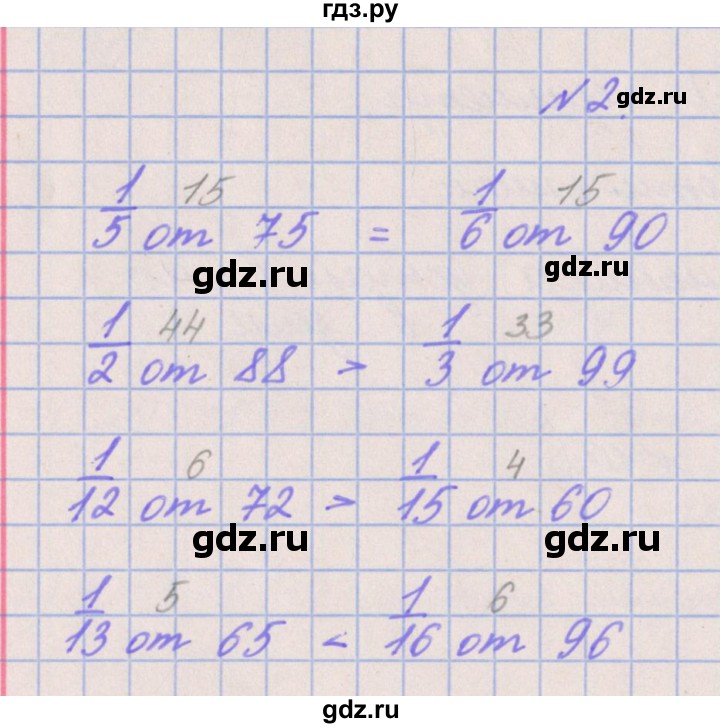 гдз.ру
N 2.
gdz.ru
15 15
1/5 от 75 = 1/6 от 90
gdz.ru gdz.ru
44 33
1/2 от 88 > 1/3 от 99
6 4
1/12 от 72 > 1/15 от 60
gdz.ru gdz.ru
5 6
1/13 от 65 < 1/16 от 96
gdz.ru